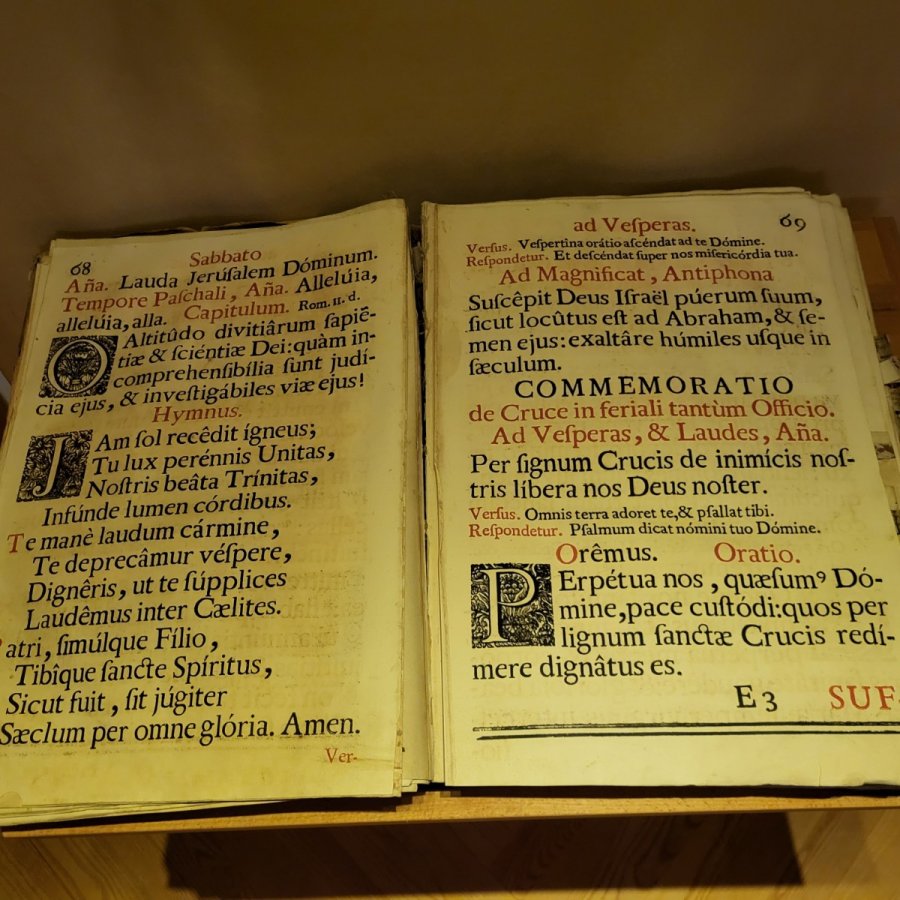 68
Sabbato
Aña. Lauda Jerúſalem Dóminum.
Tempore Paſchali, Aña. Allelúia,
allelúia, alla. Capitulum. Rom. 11. d.
O Altitûdo divitiârum ſapiē-
tiæ & ſciéntiæ Dei: quàm in-
comprehenſibília ſunt judí-
cia ejus, & inveſtigábiles viæ ejus!
Hymnus.
JAm ſol recêdit ígneus;
Tu lux perénnis Unitas,
Noſtris beâta Trínitas,
Infúnde lumen córdibus.
Te manè laudum cármine,
Te deprecâmur véſpere,
Dignêris, ut te ſúpplices
Laudêmus inter Cælites.
Patri, ſimúlque Fílio,
Tibîque ſancte Spíritus,
Sicut fuit, ſit júgiter
Sæclum per omne glória. Amen.
Ver-
ad Veſperas.
69
Verſus. Veſpertina orátio aſcéndat ad te Dómine.
Reſpondetur. Et deſcéndat ſuper nos miſericórdia tua.
Ad Magnificat, Antiphona
Suſcêpit Deus Iſraël púerum ſuum,
ſicut locûtus eſt ad Abraham, & ſe-
men ejus: exaltâre húmiles uſque in
ſæculum.
COMMEMORATIO
de Cruce in feriali tantùm Officio.
Ad Veſperas, & Laudes, Aña.
Per ſignum Crucis de inimícis noſ-
tris líbera nos Deus noſter.
Verſus. Omnis terra adoret te, & pſallat tibi.
Reſpondetur. Pſalmum dicat nómini tuo Dómine.
Orêmus. Oratio.
PErpétua nos, quæſumꝰ Dó-
mine, pace cuſtódi: quos per
lignum ſanctæ Crucis redí-
mere dignâtus es.
E3
SUF-